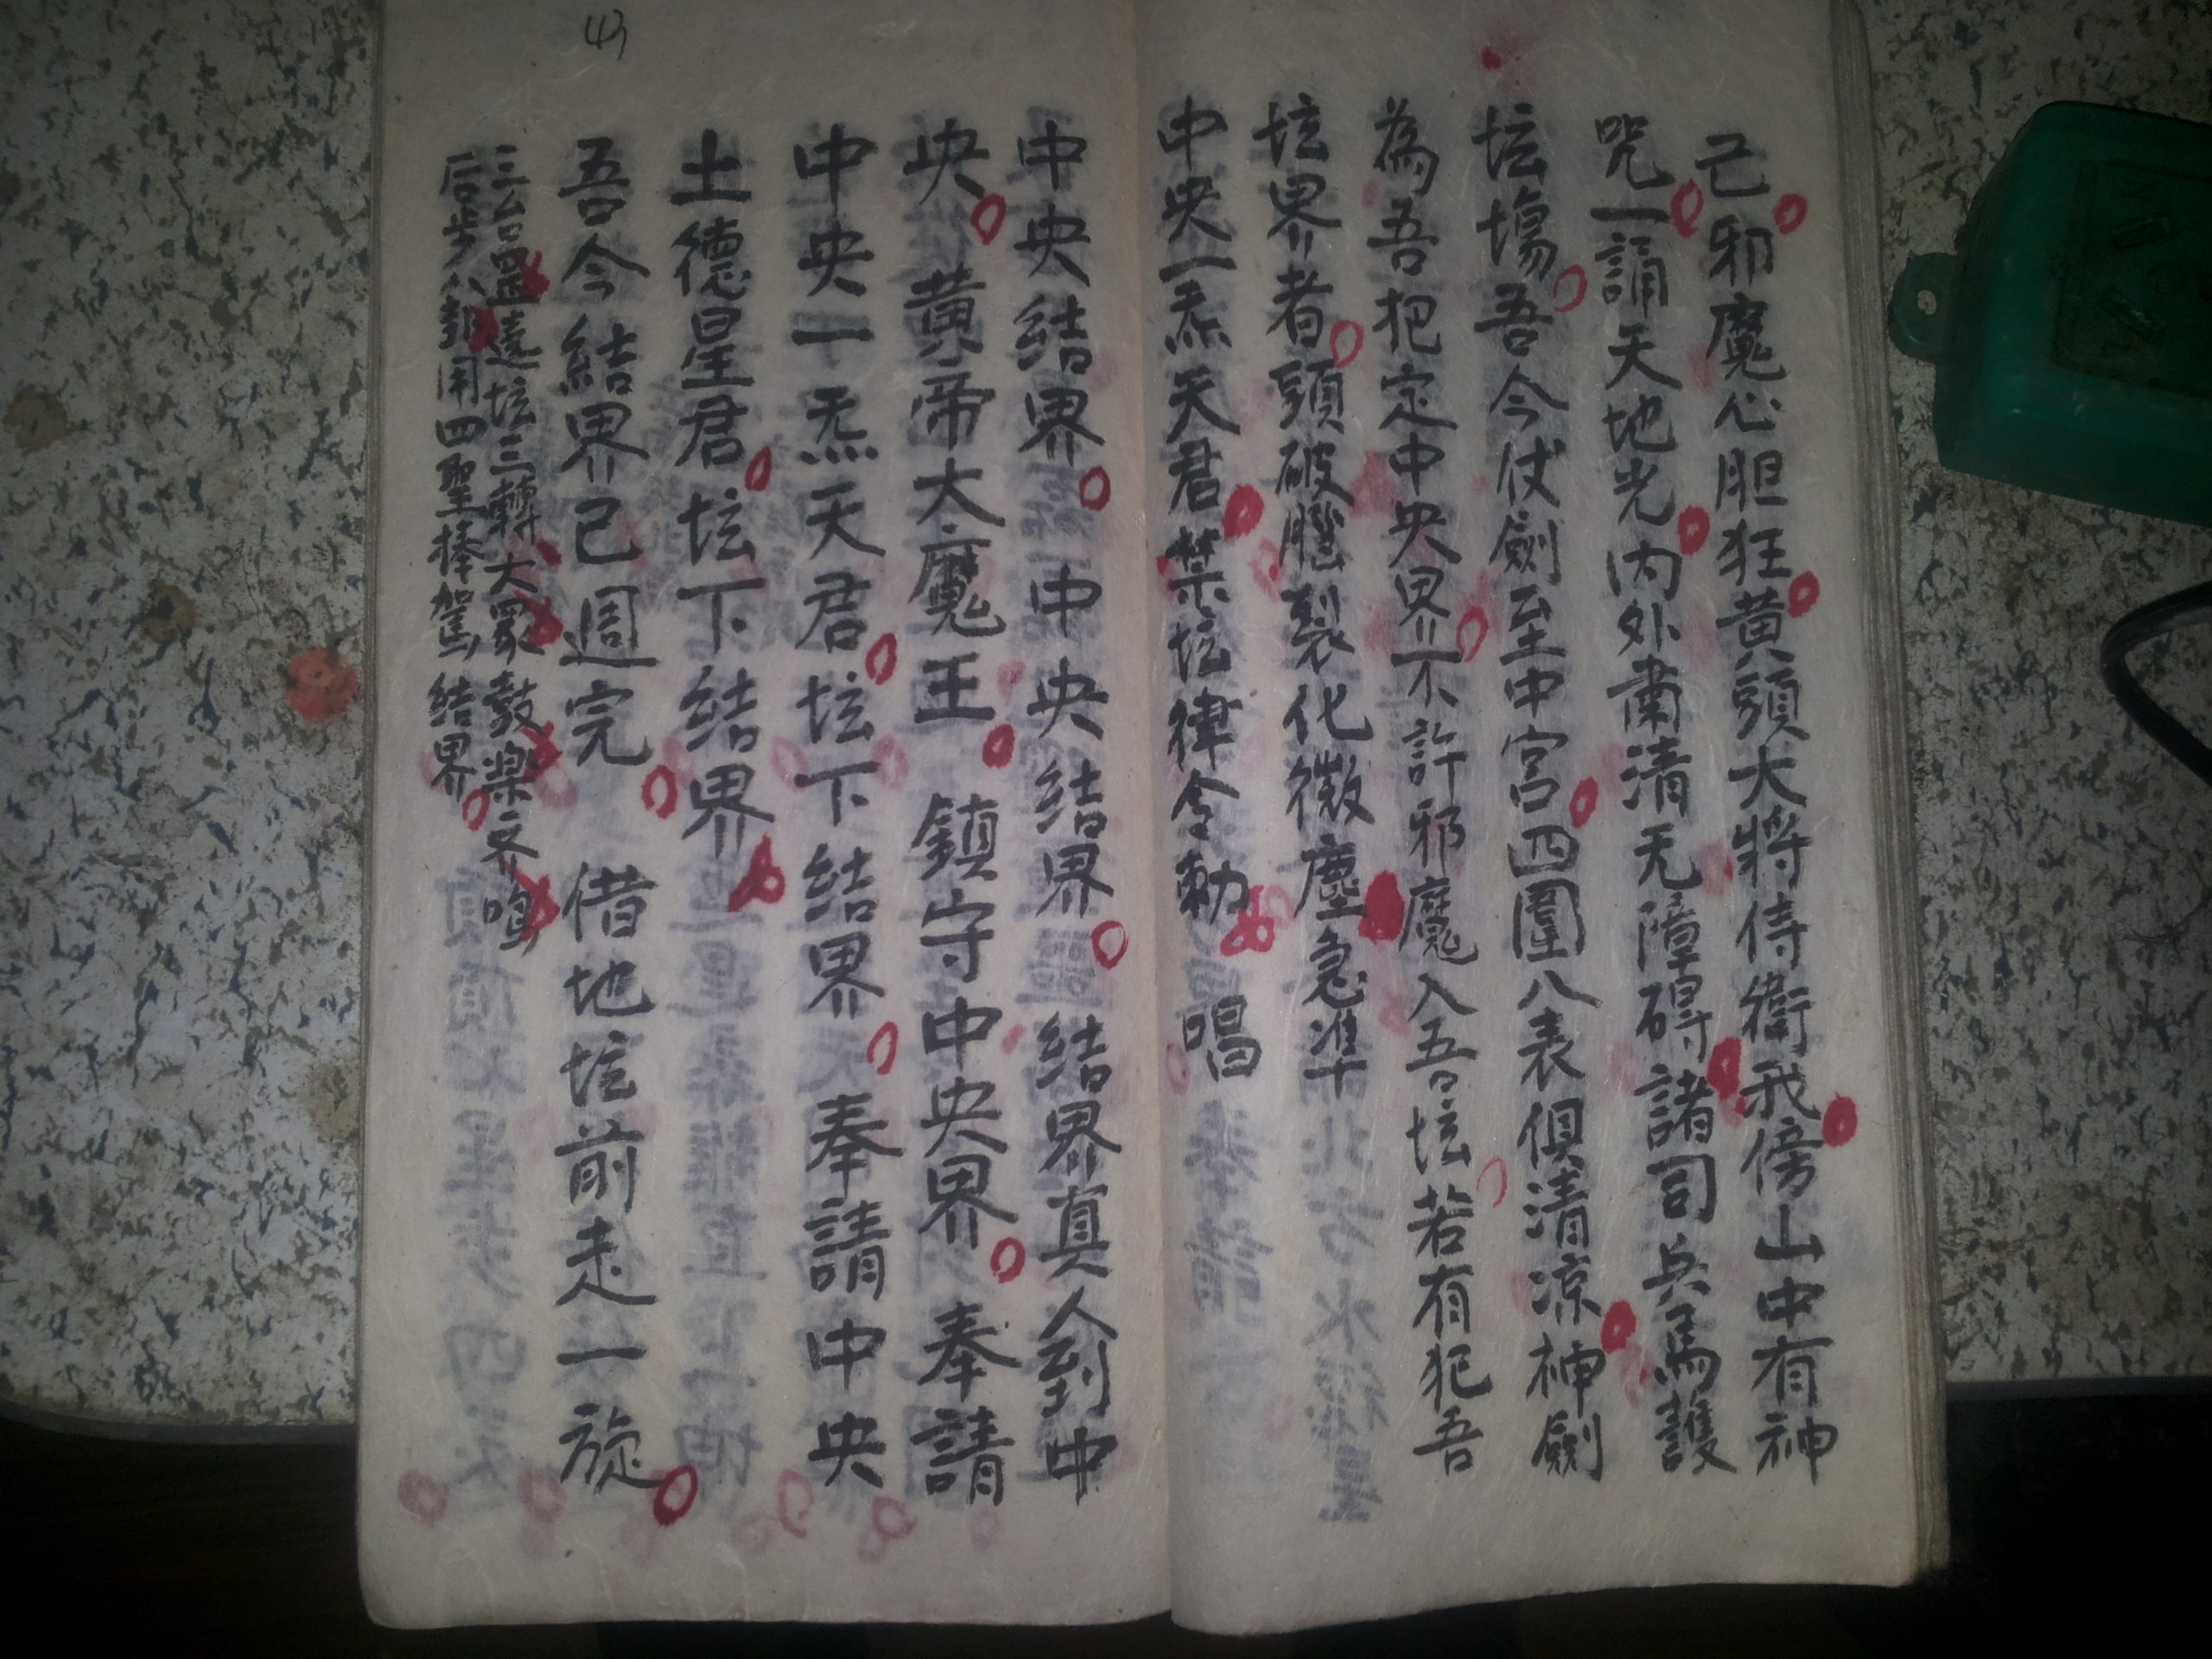 己邪魔心胆狂黄頭大將侍衛我傍山中有神
咒一誦天地光内外肅清无障碍諸司兵馬護
坛塲吾今仗劍至中宫四圍八表俱清凉神劍
為吾把定中央界不許邪魔入吾坛若有犯吾
坛界者頭破腦裂化微塵急准
中央一炁天君禁坛律令勅 唱
中央結界 中央結界 結界真人到中
央 黄帝大魔王 鎮守中央界 奉請
中央一炁天君 坛下結界 奉請中央
土德星君 坛下結界
吾今結界已週完 借地坛前走一旋
三台罡遶坛三轉大眾鼓樂齐鳴
后步八卦用四聖捧駕 結界
43